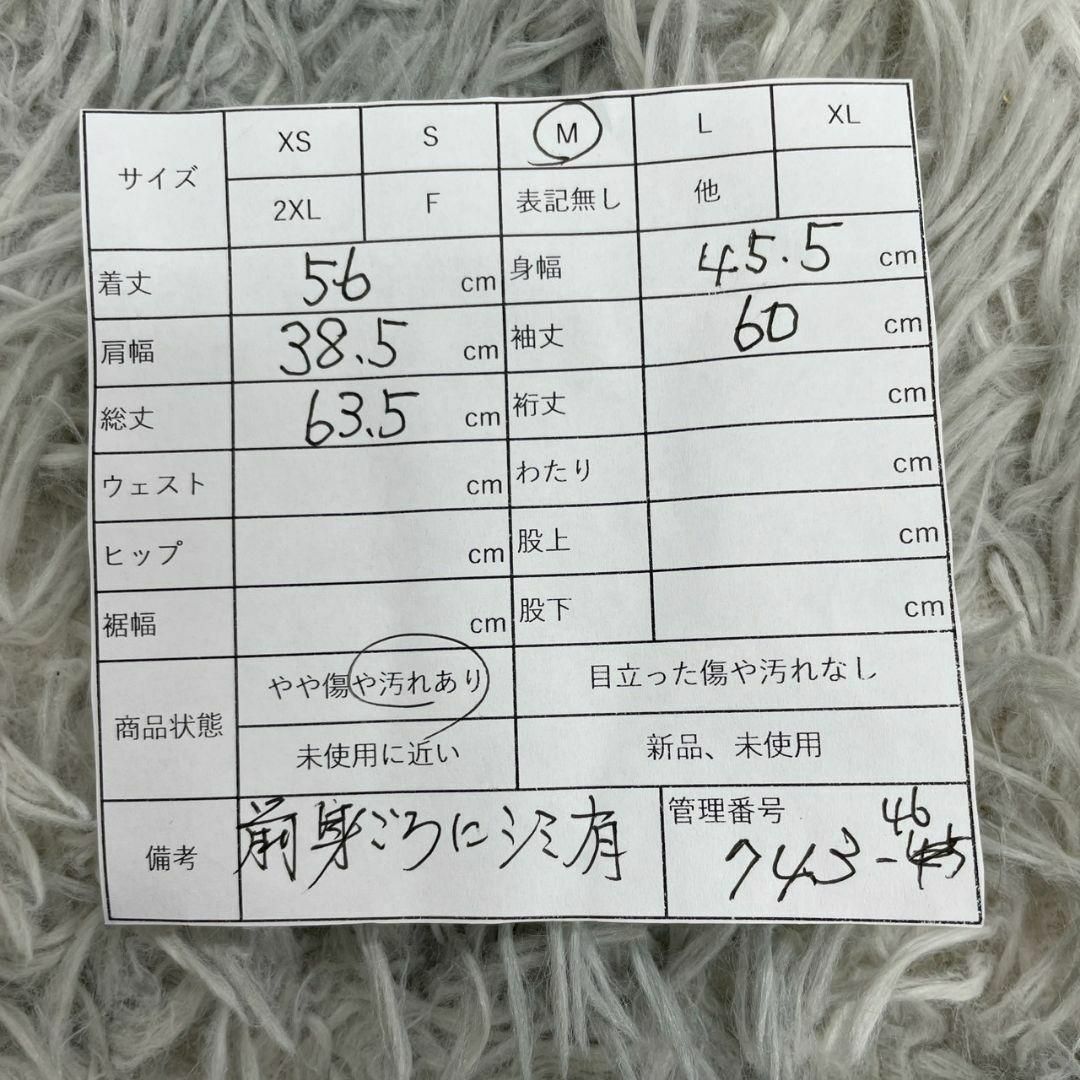 サイズ XS S M L XL
2XL F 表記無し 他
着丈 56 cm 身幅 45.5 cm
肩幅 38.5 cm 袖丈 60 cm
総丈 63.5 cm 裄丈 cm
ウェスト cm わたり cm
ヒップ cm 股上 cm
裾幅 cm 股下 cm
商品状態 やや傷や汚れあり 目立った傷や汚れなし
未使用に近い 新品、未使用
備考 前身ごろにシミ有 管理番号
46
743-45